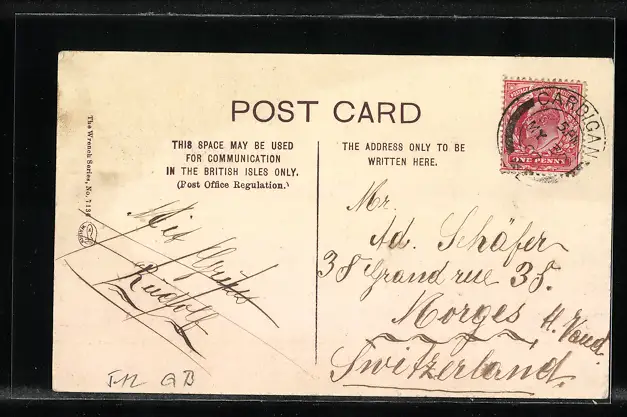 POST CARD
THIS SPACE MAY BE USED
FOR COMMUNICATION
IN THE BRITISH ISLES ONLY.
(Post Office Regulation.)
THE ADDRESS ONLY TO BE
WRITTEN HERE.
The Wrench Series, No.
CARRIGAN
ONE PENNY
Mit Gruss
Rudolf
Mr.
Ad. Schäfer
38 Grand rue 38.
Morges, Vaud.
Switzerland.
GB